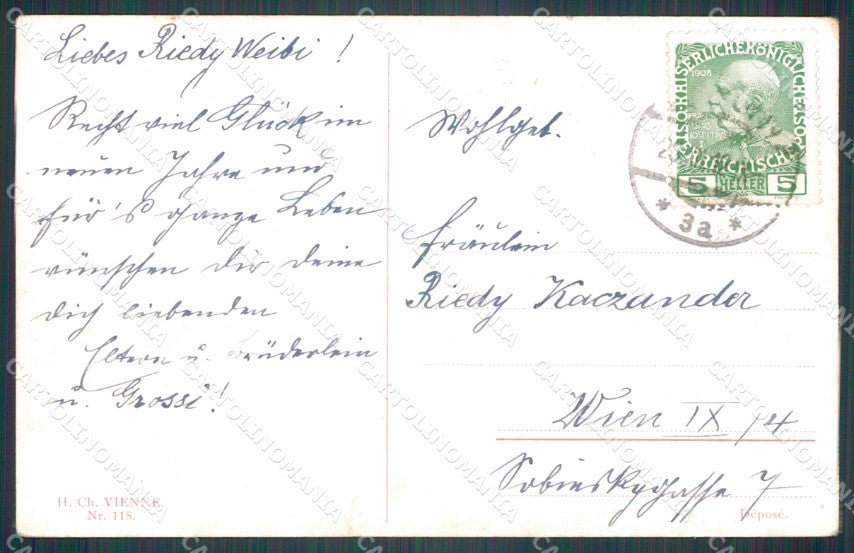 Liebes Riedy Weibi !
Recht viel Glück im
neuen Jahre und
für's ganze Leben
wünschen dir deine
dich liebenden
Eltern u. Brüderlein
u. Grossi!
H. Ch. VIENNE
Nr. 118.
KAISERLICHE KÖNIGLICHE ÖSTERREICHISCHE
1908
5 HELLER 5
* 3a *
Wohlgeb.
Fräulein
Riedy Kaczander
Wien IX /4
Sobieskygasse 7
Déposé.
CARTOLINOMANIA